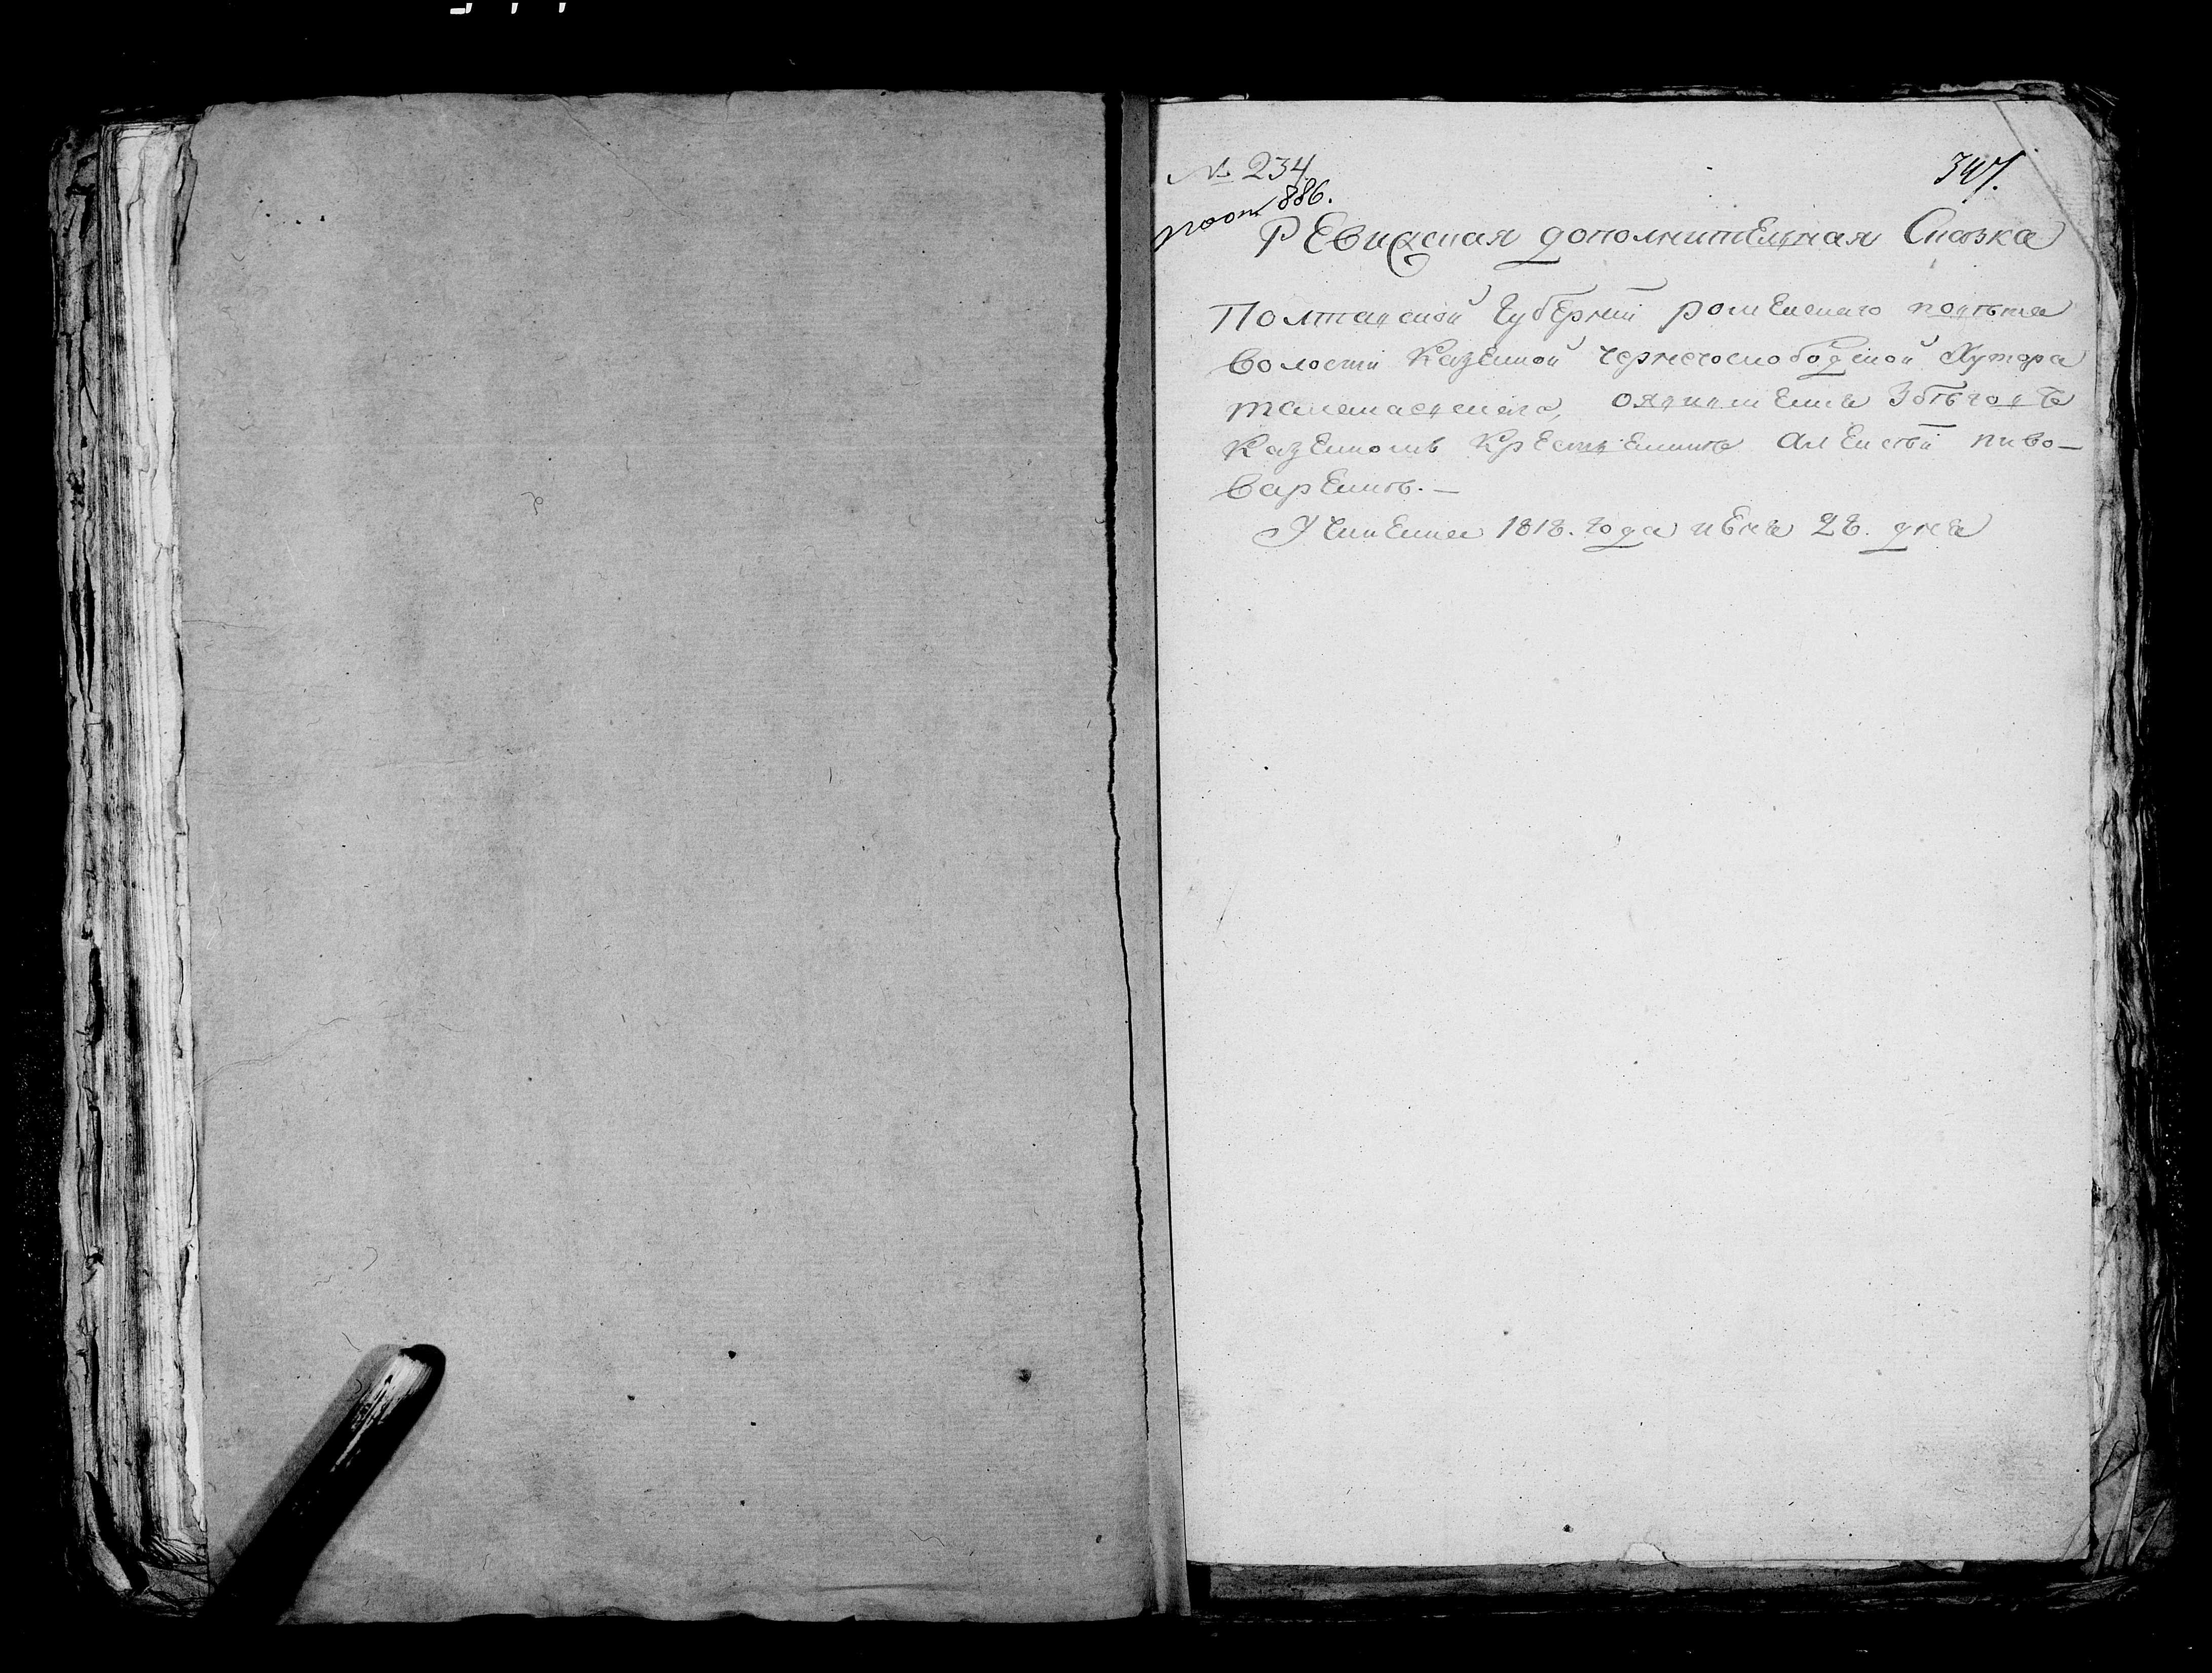 № 234.
886.
347.
Ревизская дополнительная Сказка
Полтавской Губернии роменского повета
волости Казенной чернечослободской Хутора
оявившемся збегов
Казенном Крестьянине Алексей пиво-
варенко. —
Учинена 1818. года июня 28. дня